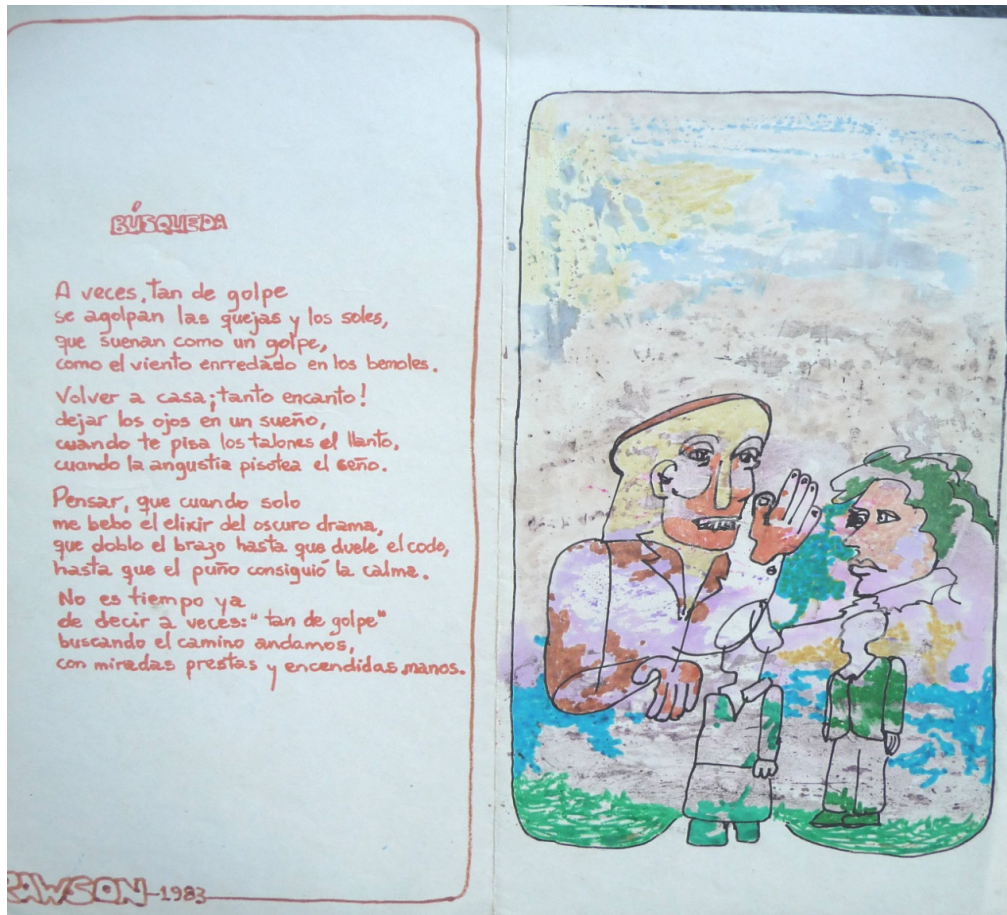 BÚSQUEDA
A veces, tan de golpe
se agolpan las quejas y los soles,
que suenan como un golpe,
como el viento enrredado en los bemoles.
Volver a casa; ¡tanto encanto!
dejar los ojos en un sueño,
cuando te pisa los talones el llanto,
cuando la angustia pisotea el ceño.
Pensar, que cuando solo
me bebo el elixir del oscuro drama,
que doblo el brazo hasta que duele el codo,
hasta que el puño consiguió la calma.
No es tiempo ya
de decir a veces: "tan de golpe"
buscando el camino andamos,
con miradas prestas y encendidas manos.
RAWSON-1983